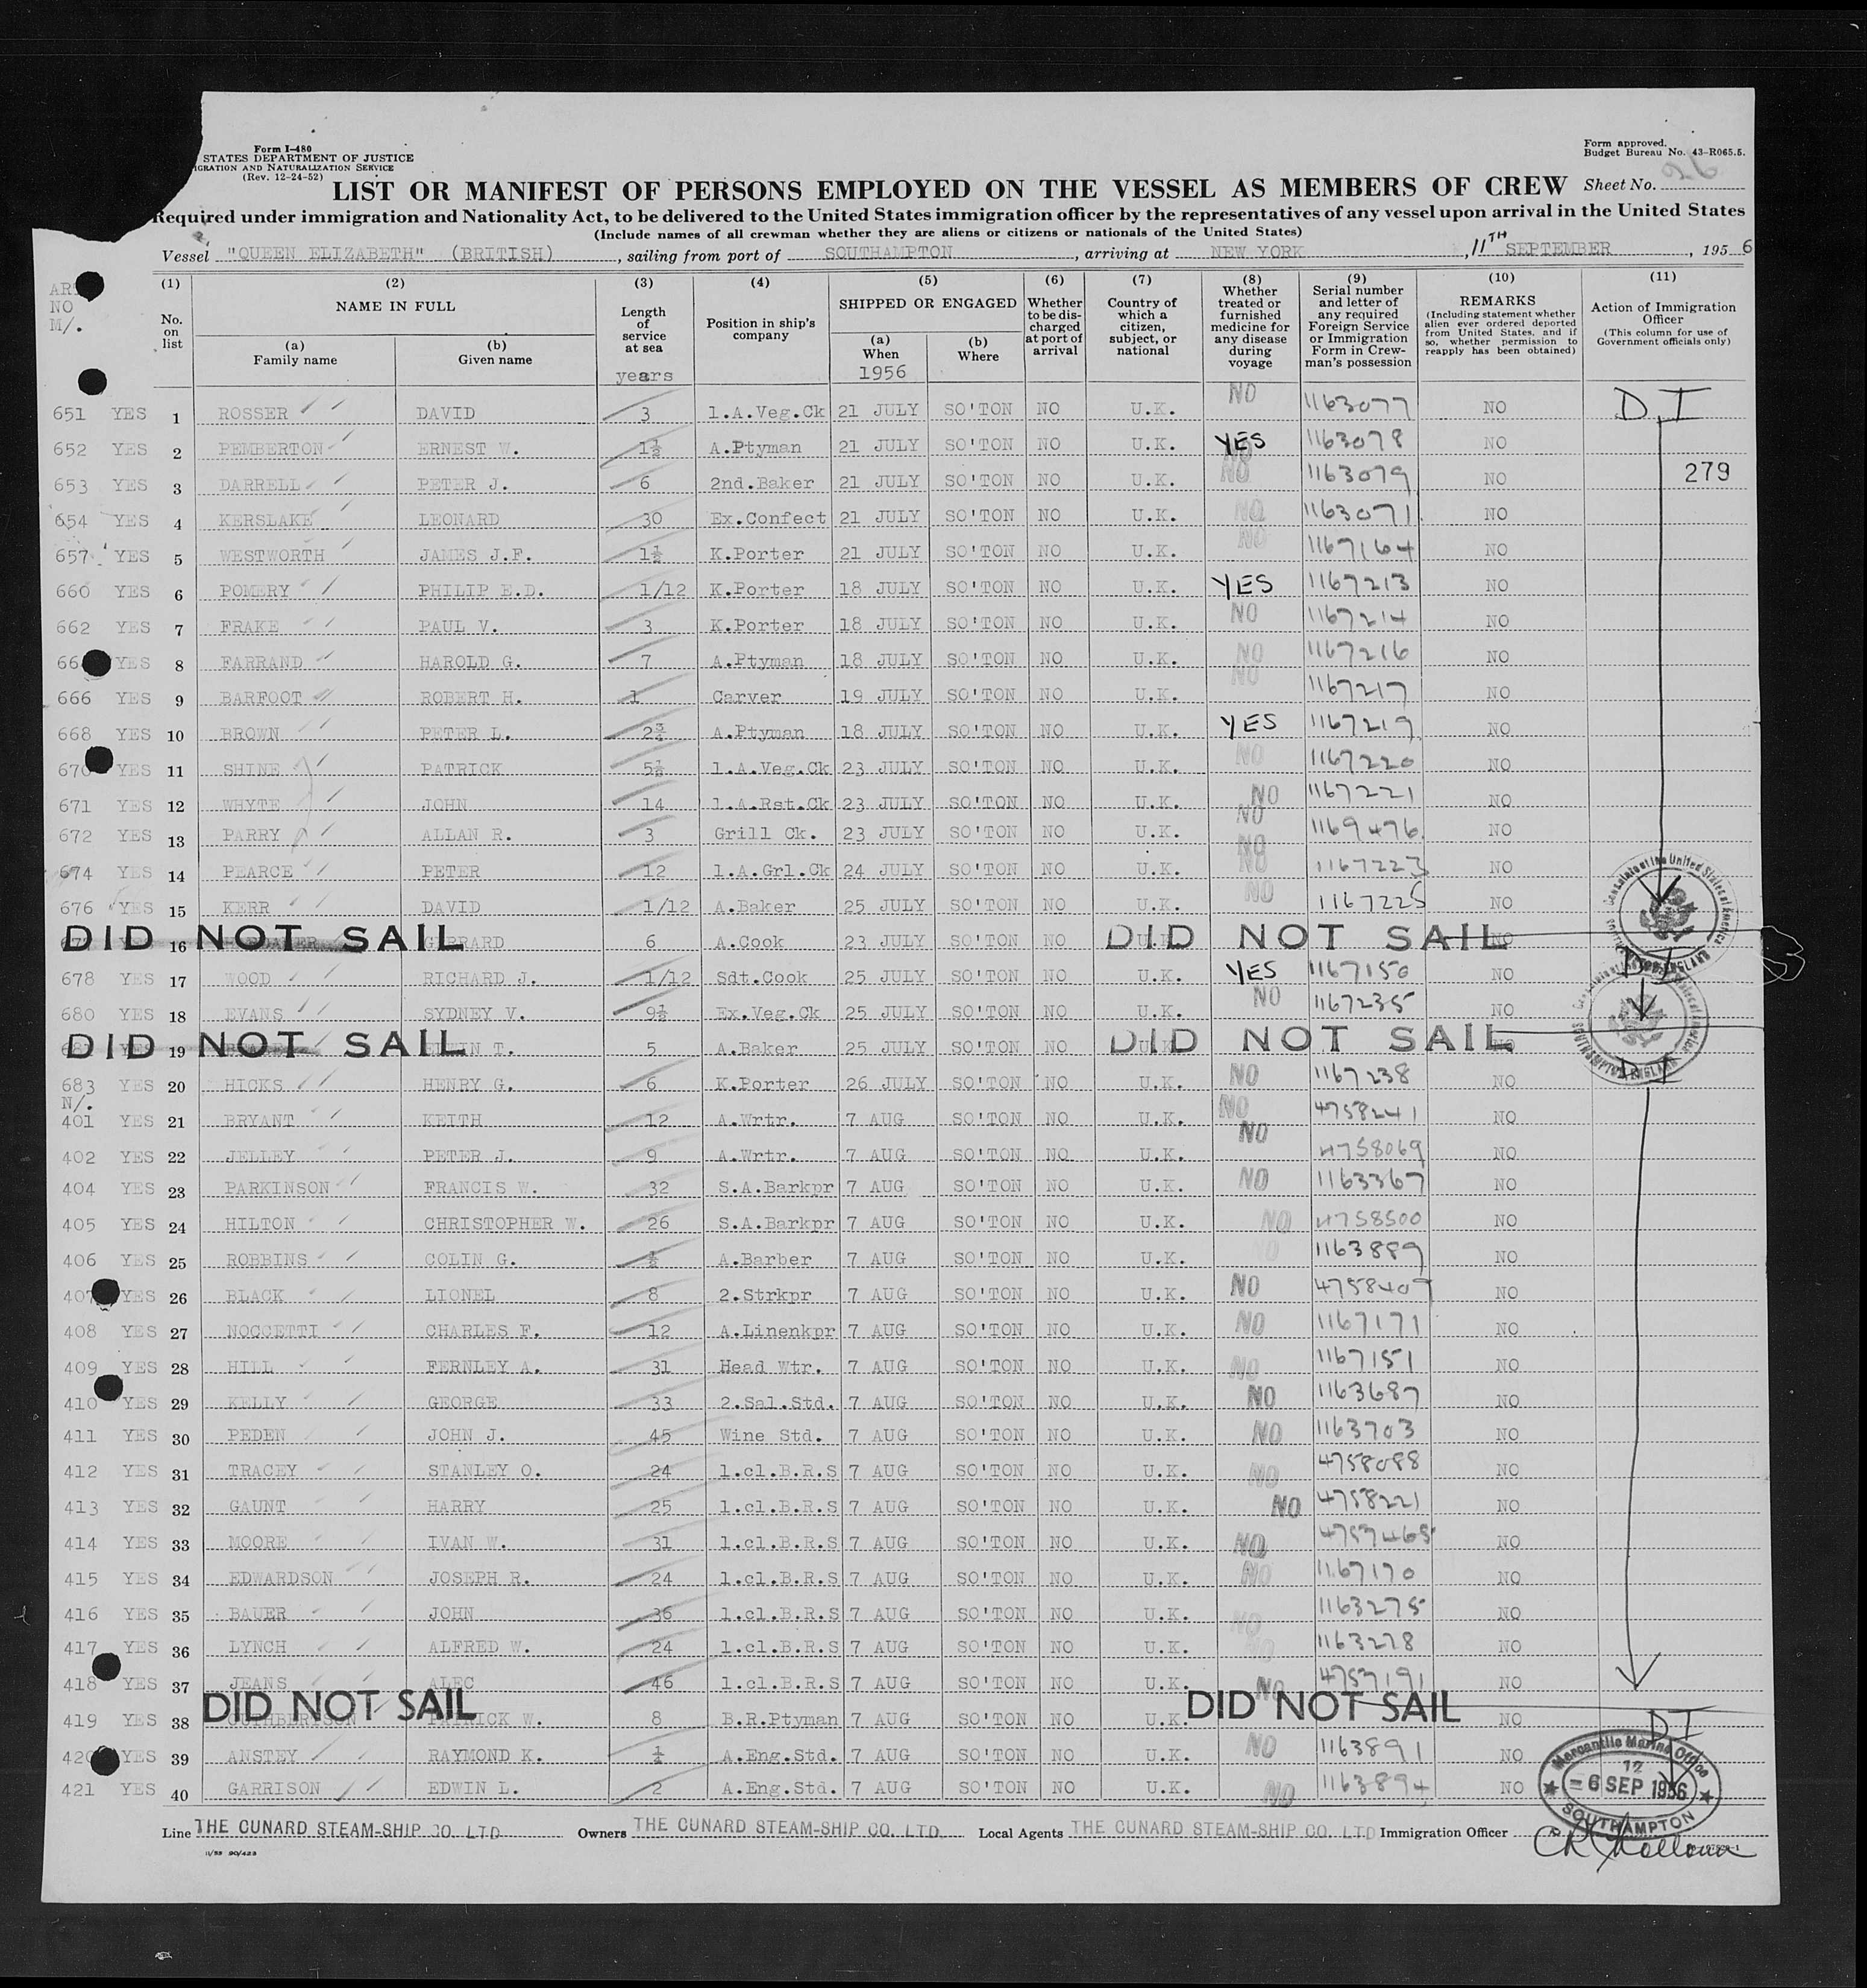 Form I-480
STATES DEPARTMENT OF JUSTICE
IGRATION AND NATURALIZATION SERVICE
(Rev. 12-24-52)
Form approved.
Budget Bureau No. 43-R065.5.
LIST OR MANIFEST OF PERSONS EMPLOYED ON THE VESSEL AS MEMBERS OF CREW Sheet No. 26
Required under immigration and Nationality Act, to be delivered to the United States immigration officer by the representatives of any vessel upon arrival in the United States
(Include names of all crewman whether they are aliens or citizens or nationals of the United States)
Vessel "QUEEN ELIZABETH" (BRITISH), sailing from port of SOUTHAMPTON, arriving at NEW YORK, 11TH SEPTEMBER, 1956
AR
NO
M/.
(1) No. on list
(2) NAME IN FULL
(a) Family name
(b) Given name
(3) Length of service at sea
years
(4) Position in ship's company
(5) SHIPPED OR ENGAGED
(a) When
1956
(b) Where
(6) Whether to be discharged at port of arrival
(7) Country of which a citizen, subject, or national
(8) Whether treated or furnished medicine for any disease during voyage
(9) Serial number and letter of any required Foreign Service or Immigration Form in Crewman's possession
(10) REMARKS
(Including statement whether alien ever ordered deported from United States, and if so, whether permission to reapply has been obtained)
(11) Action of Immigration Officer
(This column for use of Government officials only)
651 YES 1 ROSSER DAVID 3 1.A.Veg.Ck 21 JULY SO'TON NO U.K. NO 1163077 NO D.I
652 YES 2 PEMBERTON ERNEST W. 1½ A.Ptyman 21 JULY SO'TON NO U.K. YES 1163078 NO
653 YES 3 DARRELL PETER J. 6 2nd.Baker 21 JULY SO'TON NO U.K. NO 1163079 NO 279
654 YES 4 KERSLAKE LEONARD 30 Ex.Confect 21 JULY SO'TON NO U.K. NO 1163071 NO
657 YES 5 WESTWORTH JAMES J.F. 1½ K.Porter 21 JULY SO'TON NO U.K. NO 1167164 NO
660 YES 6 POMERY PHILIP E.D. 1/12 K.Porter 18 JULY SO'TON NO U.K. YES 1167213 NO
662 YES 7 FRAKE PAUL V. 3 K.Porter 18 JULY SO'TON NO U.K. NO 1167214 NO
66 YES 8 FARRAND HAROLD G. 7 A.Ptyman 18 JULY SO'TON NO U.K. NO 1167216 NO
666 YES 9 BARFOOT ROBERT H. 1 Carver 19 JULY SO'TON NO U.K. NO 1167217 NO
668 YES 10 BROWN PETER L. 2¾ A.Ptyman 18 JULY SO'TON NO U.K. YES 1167219 NO
670 YES 11 SHINE PATRICK 5½ 1.A.Veg.Ck 23 JULY SO'TON NO U.K. NO 1167220 NO
671 YES 12 WHYTE JOHN 14 1.A.Rst.Ck 23 JULY SO'TON NO U.K. NO 1167221 NO
672 YES 13 PARRY ALLAN R. 3 Grill Ck. 23 JULY SO'TON NO U.K. NO 1169476 NO
674 YES 14 PEARCE PETER 12 1.A.Grl.Ck 24 JULY SO'TON NO U.K. NO 1167223 NO
676 YES 15 KERR DAVID 1/12 A.Baker 25 JULY SO'TON NO U.K. NO 1167225 NO
DID NOT SAIL 16 GERRARD 6 A.Cook 23 JULY SO'TON NO DID NOT SAIL NO
678 YES 17 WOOD RICHARD J. 1/12 Sdt.Cook 25 JULY SO'TON NO U.K. YES 1167150 NO DI
680 YES 18 EVANS SYDNEY V. 9½ Ex.Veg.Ck 25 JULY SO'TON NO U.K. NO 1167235 NO
DID NOT SAIL 19 T. 5 A.Baker 25 JULY SO'TON NO DID NOT SAIL NO
683 YES 20 HICKS HENRY G. 6 K.Porter 26 JULY SO'TON NO U.K. NO 1167238 NO DI
N/.
401 YES 21 BRYANT KEITH 12 A.Wrtr. 7 AUG SO'TON NO U.K. NO 4758241 NO
402 YES 22 JELLEY PETER J. 9 A.Wrtr. 7 AUG SO'TON NO U.K. NO 4758069 NO
404 YES 23 PARKINSON FRANCIS W. 32 S.A.Barkpr 7 AUG SO'TON NO U.K. NO 1163367 NO
405 YES 24 HILTON CHRISTOPHER W. 26 S.A.Barkpr 7 AUG SO'TON NO U.K. NO 4758500 NO
406 YES 25 ROBBINS COLIN G. ½ A.Barber 7 AUG SO'TON NO U.K. NO 1163889 NO
407 YES 26 BLACK LIONEL 8 2.Strkpr 7 AUG SO'TON NO U.K. NO 4758407 NO
408 YES 27 NOCCETTI CHARLES F. 12 A.Linenkpr 7 AUG SO'TON NO U.K. NO 1167171 NO
409 YES 28 HILL FERNLEY A. 31 Head Wtr. 7 AUG SO'TON NO U.K. NO 1167151 NO
410 YES 29 KELLY GEORGE 33 2.Sal.Std. 7 AUG SO'TON NO U.K. NO 1163687 NO
411 YES 30 PEDEN JOHN J. 45 Wine Std. 7 AUG SO'TON NO U.K. NO 1163703 NO
412 YES 31 TRACEY STANLEY O. 24 1.cl.B.R.S 7 AUG SO'TON NO U.K. NO 4758088 NO
413 YES 32 GAUNT HARRY 25 1.cl.B.R.S 7 AUG SO'TON NO U.K. NO 4758221 NO
414 YES 33 MOORE IVAN W. 31 1.cl.B.R.S 7 AUG SO'TON NO U.K. NO 4757465 NO
415 YES 34 EDWARDSON JOSEPH R. 24 1.cl.B.R.S 7 AUG SO'TON NO U.K. NO 1167170 NO
416 YES 35 BAUER JOHN 36 1.cl.B.R.S 7 AUG SO'TON NO U.K. NO 1163275 NO
417 YES 36 LYNCH ALFRED W. 24 1.cl.B.R.S 7 AUG SO'TON NO U.K. NO 1163278 NO
418 YES 37 JEANS ALEC 46 1.cl.B.R.S 7 AUG SO'TON NO U.K. NO 4757191 NO
DID NOT SAIL DID NOT SAIL
419 YES 38 CUTHBERTSON PATRICK W. 8 B.R.Ptyman 7 AUG SO'TON NO U.K. NO DI
420 YES 39 ANSTEY RAYMOND K. ¼ A.Eng.Std. 7 AUG SO'TON NO U.K. NO 1163891 NO
421 YES 40 GARRISON EDWIN L. 2 A.Eng.Std. 7 AUG SO'TON NO U.K. NO 1163894 NO
Mercantile Marine Office
12
6 SEP 1956
SOUTHAMPTON
Line THE CUNARD STEAM-SHIP CO. LTD Owners THE CUNARD STEAM-SHIP CO. LTD. Local Agents THE CUNARD STEAM-SHIP CO. LTD Immigration Officer
11/53 90/423